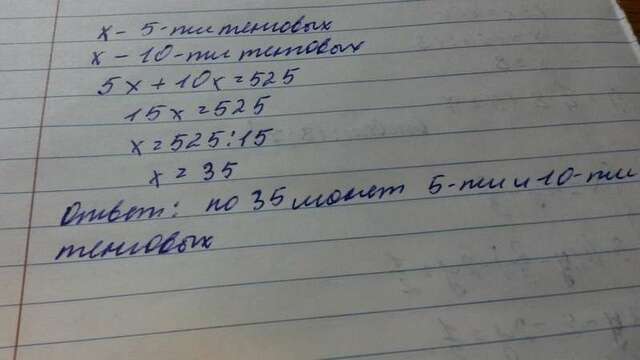 х - 5-ти тенговых
х - 10-ти тенговых
5х + 10х = 525
15х = 525
х = 525:15
х = 35
Ответ: по 35 монет 5-ти и 10-ти
тенговых